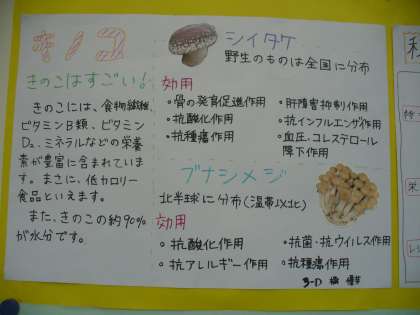 キノコ
きのこはすごい!
きのこには、食物繊維、
ビタミンB類、ビタミン
D₂、ミネラルなどの栄養
素が豊富に含まれていま
す。まさに、低カロリー
食品といえます。
また、きのこの約90%
が水分です。
シイタケ
野生のものは全国に分布
効用
・骨の発育促進作用
・抗酸化作用
・抗腫瘍作用
・肝障害抑制作用
・抗インフルエンザ作用
・血圧、コレステロール
降下作用
ブナシメジ
北半球に分布(温帯以北)
効用
・抗酸化作用
・抗アレルギー作用
・抗菌・抗ウイルス作用
・抗腫瘍作用
3-D